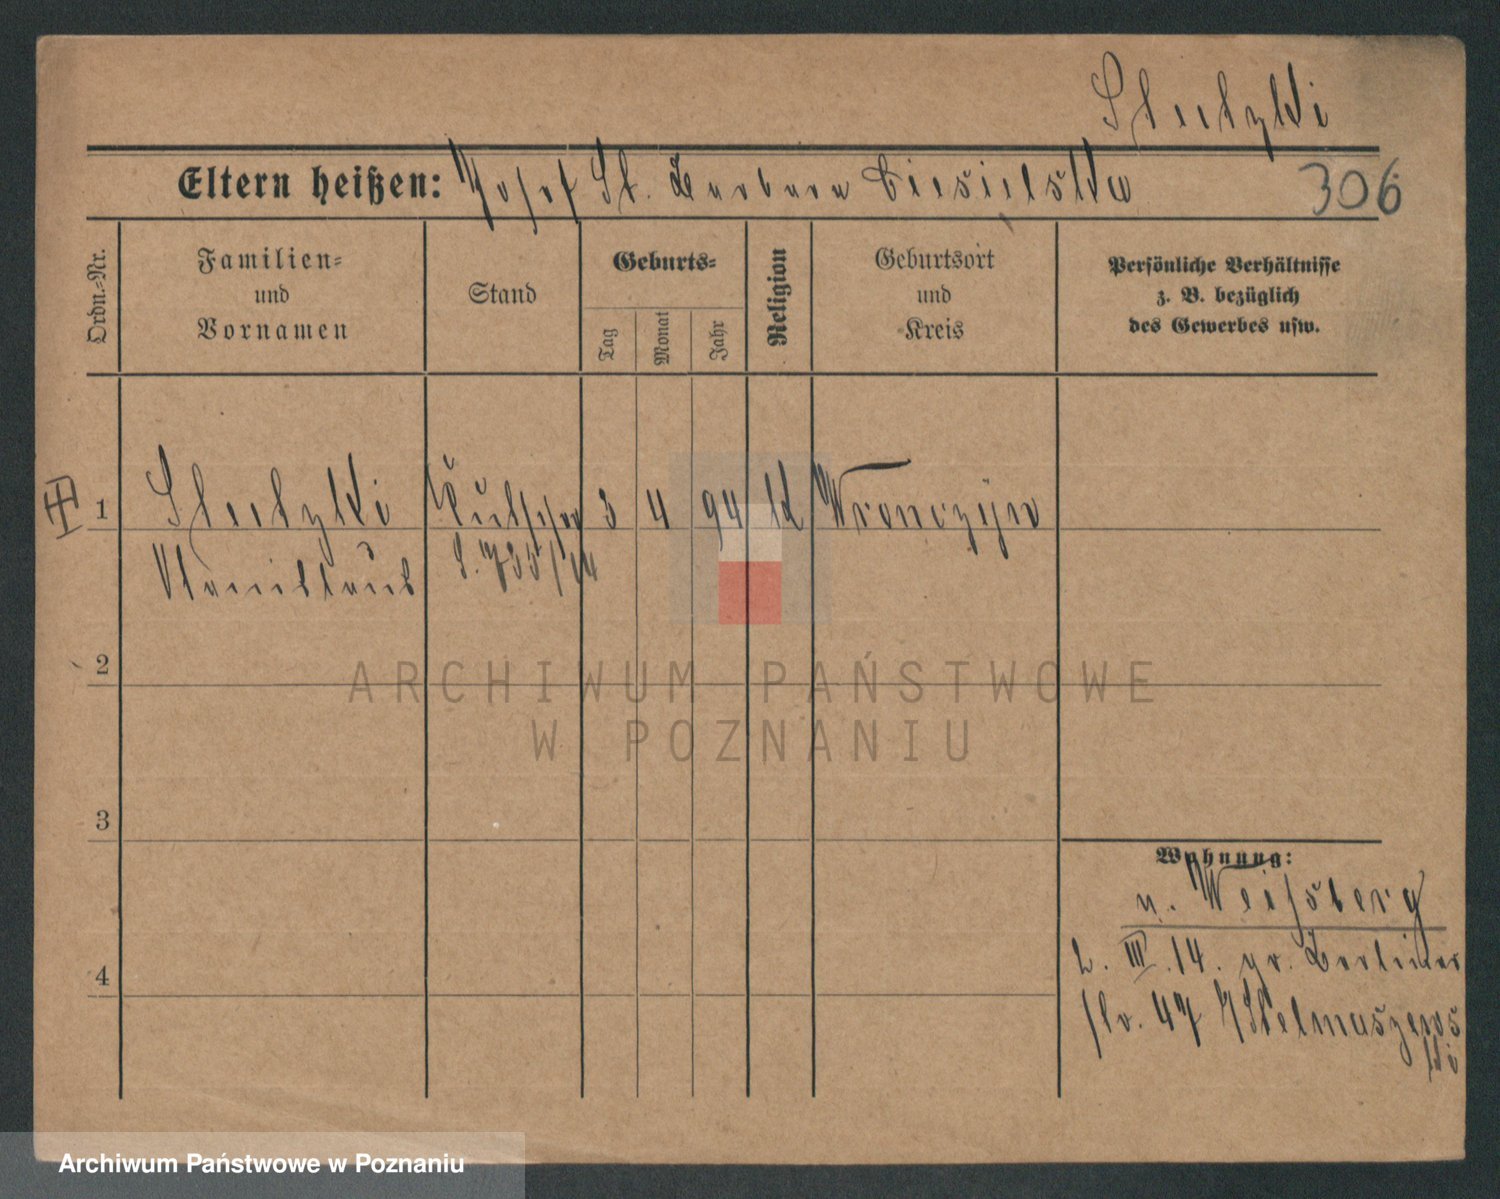 Stuczyki
Eltern heißen: Josef St. Barbara Ciesielska
306
Ordn.-Nr.
Familien- und Vornamen
Stand
Geburts-
Tag
Monat
Jahr
Religion
Geburtsort und Kreis
Persönliche Verhältnisse
z. B. bezüglich
des Gewerbes usw.
1
Kutscher 3 4 94 k Wronczyn
Stanislaus
2
3
4
Wohnung:
n. Weißberg
2. III. 14. gr. Berliner
str. 47
Archiwum Państwowe
w Poznaniu
Archiwum Państwowe w Poznaniu